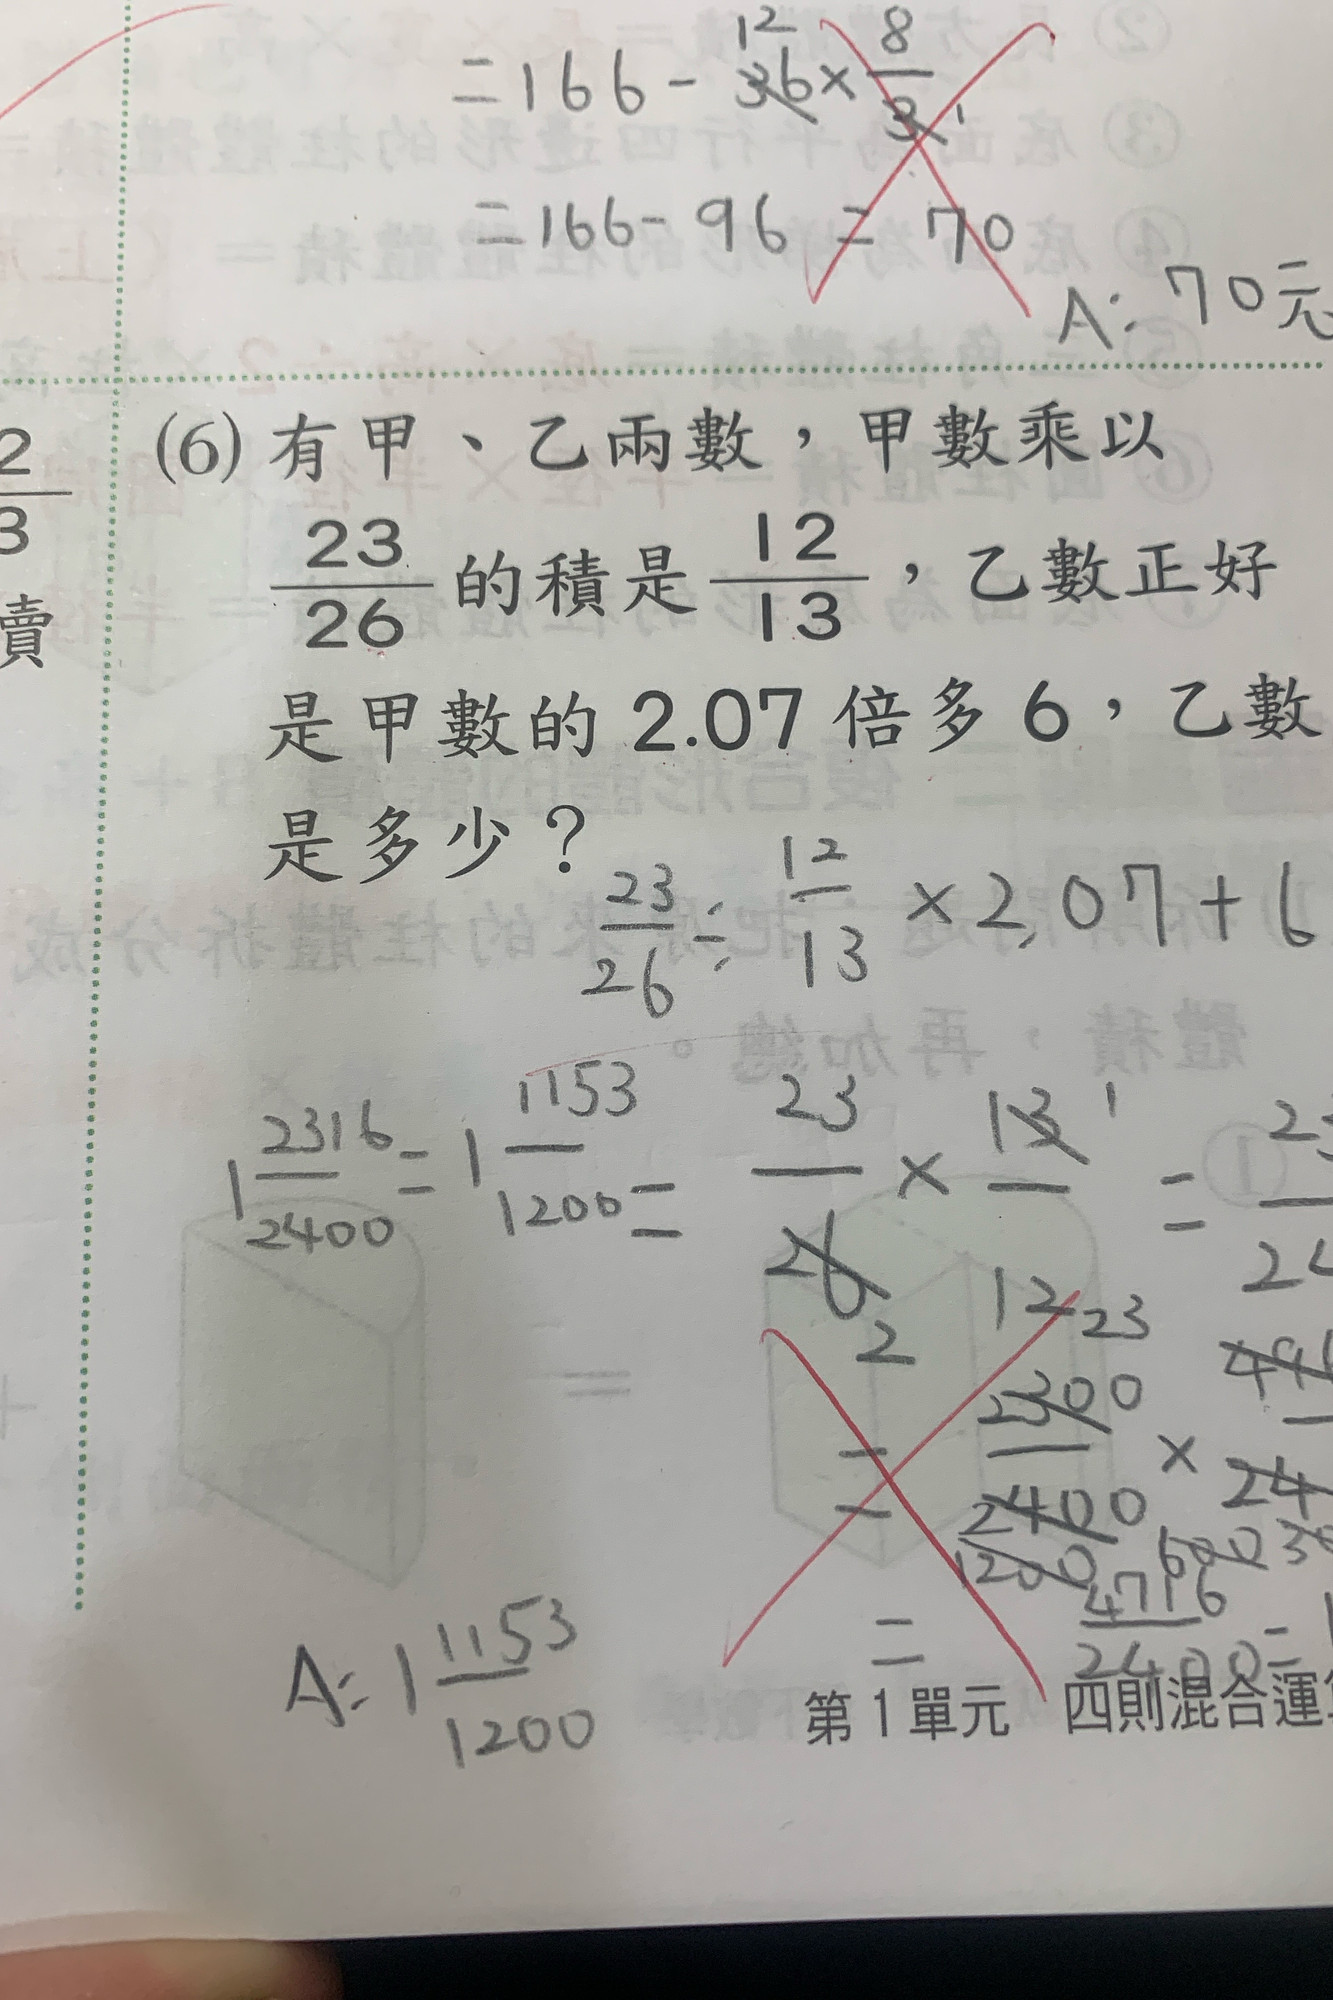 =166-36×8/3
12
1
=166-96=70
A:70元
2/3
賣
(6)有甲、乙兩數，甲數乘以
23/26的積是12/13，乙數正好
是甲數的2.07倍多6，乙數
是多少？
23/26÷12/13×2.07+6
1 2316/2400=1 1153/1200
=23/26×13/12=
2
1
=2300/2400×
23
1200
600
=4716/2400=
A:1 1153/1200
第1單元 四則混合運